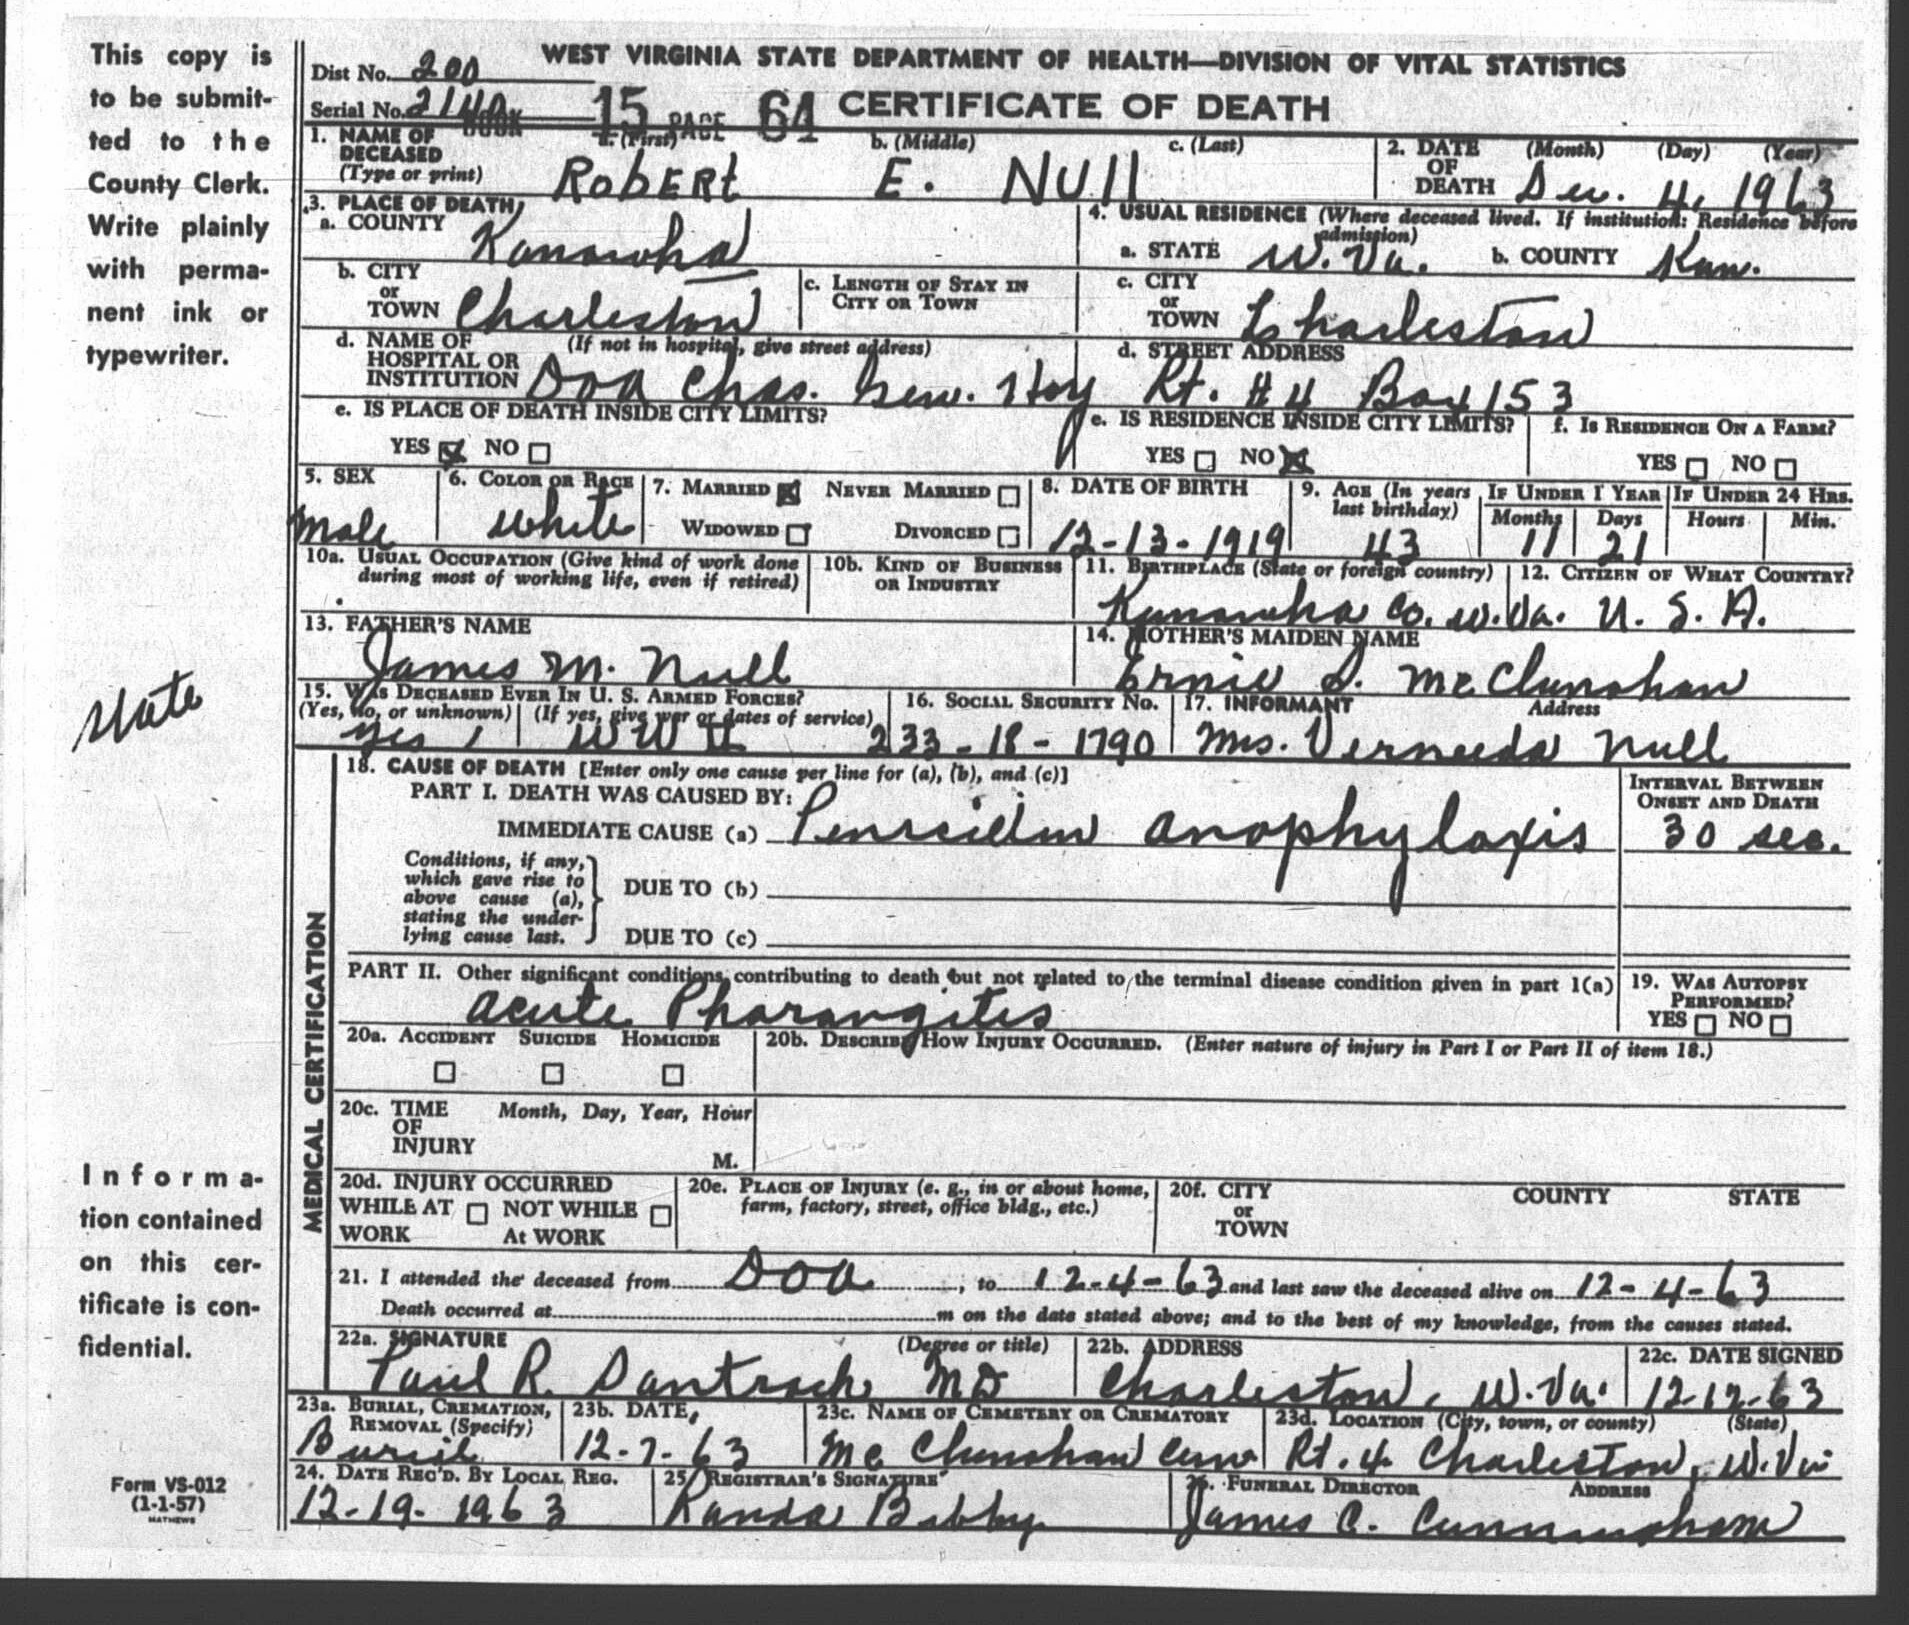 This copy is
to be submit-
ted to the
County Clerk.
Write plainly
with perma-
nent ink or
typewriter.
WEST VIRGINIA STATE DEPARTMENT OF HEALTH—DIVISION OF VITAL STATISTICS
Dist No. 200
Serial No. 2140
BOOK 15 PAGE 64 CERTIFICATE OF DEATH
1. NAME OF DECEASED (Type or print) a. (First) b. (Middle) c. (Last)
ROBERT E. NULL
2. DATE OF DEATH (Month) (Day) (Year)
Dec. 4, 1963
3. PLACE OF DEATH
a. COUNTY Kanawha
4. USUAL RESIDENCE (Where deceased lived. If institution: Residence before admission)
a. STATE W. Va. b. COUNTY Kan.
b. CITY or TOWN Charleston
c. LENGTH OF STAY IN CITY OR TOWN
c. CITY or TOWN Charleston
d. NAME OF HOSPITAL OR INSTITUTION (If not in hospital, give street address)
DOA Chas. Gen. Hosp
d. STREET ADDRESS
Rt. #4 Box 153
e. IS PLACE OF DEATH INSIDE CITY LIMITS?
YES NO
e. IS RESIDENCE INSIDE CITY LIMITS?
YES NO
f. IS RESIDENCE ON A FARM?
YES NO
5. SEX
Male
6. COLOR OR RACE
White
7. MARRIED NEVER MARRIED
WIDOWED DIVORCED
8. DATE OF BIRTH
12-13-1919
9. AGE (In years last birthday)
43
IF UNDER 1 YEAR
Months Days
11 21
IF UNDER 24 HRS.
Hours Min.
10a. USUAL OCCUPATION (Give kind of work done during most of working life, even if retired)
10b. KIND OF BUSINESS OR INDUSTRY
11. BIRTHPLACE (State or foreign country)
Kanawha Co. W. Va.
12. CITIZEN OF WHAT COUNTRY?
U. S. A.
13. FATHER'S NAME
James M. Null
14. MOTHER'S MAIDEN NAME
Ernie S. McClunahan
15. WAS DECEASED EVER IN U. S. ARMED FORCES?
(Yes, no, or unknown) (If yes, give war or dates of service)
Yes WW II
16. SOCIAL SECURITY NO.
233-18-1790
17. INFORMANT Address
Mrs. Verneeda Null
State
MEDICAL CERTIFICATION
18. CAUSE OF DEATH [Enter only one cause per line for (a), (b), and (c)]
PART I. DEATH WAS CAUSED BY:
IMMEDIATE CAUSE (a) Penicillin anaphylaxis
INTERVAL BETWEEN ONSET AND DEATH
30 sec.
Conditions, if any,
which gave rise to
above cause (a),
stating the under-
lying cause last.
DUE TO (b)
DUE TO (c)
PART II. Other significant conditions contributing to death but not related to the terminal disease condition given in part 1(a)
Acute Pharangitis
19. WAS AUTOPSY PERFORMED?
YES NO
20a. ACCIDENT SUICIDE HOMICIDE
20b. DESCRIBE HOW INJURY OCCURRED. (Enter nature of injury in Part I or Part II of item 18.)
20c. TIME OF INJURY Month, Day, Year, Hour
M.
20d. INJURY OCCURRED
WHILE AT WORK NOT WHILE At WORK
20e. PLACE OF INJURY (e. g., in or about home, farm, factory, street, office bldg., etc.)
20f. CITY or TOWN COUNTY STATE
21. I attended the deceased from DOA, to 12-4-63 and last saw the deceased alive on 12-4-63
Death occurred at m on the date stated above; and to the best of my knowledge, from the causes stated.
22a. SIGNATURE (Degree or title)
Paul R. MD
22b. ADDRESS
Charleston, W. Va.
22c. DATE SIGNED
12-12-63
23a. BURIAL, CREMATION, REMOVAL (Specify)
Burial
23b. DATE
12-7-63
23c. NAME OF CEMETERY OR CREMATORY
McClunahan Cem
23d. LOCATION (City, town, or county) (State)
Rt. 4 Charleston, W. Va
24. DATE REC'D. BY LOCAL REG.
12-19-1963
25. REGISTRAR'S SIGNATURE
Randa Bibby
26. FUNERAL DIRECTOR ADDRESS
James C. Cunningham
Informa-
tion contained
on this cer-
tificate is con-
fidential.
Form VS-012
(1-1-57)
MATHEWS